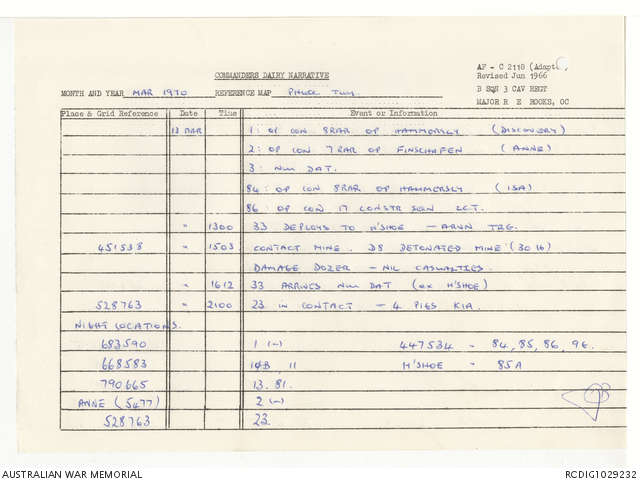 AF - C 2118 (Adapt
COMMANDERS DAIRY NARRATIVE Revised Jun 1966
B SQN 3 CAV REGT
MONTH AND YEAR MAR 1970 REFERENCE MAP PHUOC TUY. MAJOR R E ROOKS, OC
Place & Grid Reference Date Time Event or Information
13 MAR 1: OP CON 8RAR OP HAMMERSLY (DISCOVERY)
2: OP CON 7RAR OP FINSCHAFEN (ANNE)
3: NUI DAT.
84: OP CON 8RAR OP HAMMERSLY (ISA)
86: OP CON 17 CONSTR SQN LCT.
" 1300 33 DEPLOYS TO H'SHOE - ARVN TRG.
451538 " 1503 CONTACT MINE. D8 DETONATED MINE (30 lb)
DAMAGE DOZER - NIL CASUALTIES.
" 1612 33 ARRIVES NUI DAT (ex H'SHOE)
528763 " 2100 23 IN CONTACT - 4 PIGS KIA.
NIGHT LOCATIONS.
683590 1 (-) 447534 - 84, 85, 86, 9E.
668583 11 H'SHOE - 85A
790665 13. 81.
ANNE (5477) 2 (-)
528763 23.
AUSTRALIAN WAR MEMORIAL RCDIG1029232